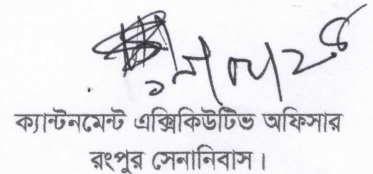 ক্যান্টনমেন্ট এক্সিকিউটিভ অফিসার
রংপুর সেনানিবাস।